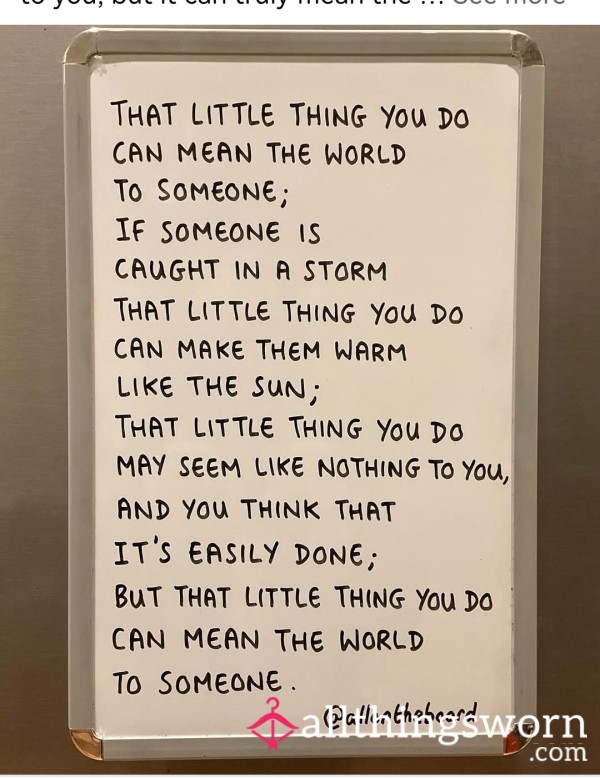 to you, but it can truly mean the ... See more
THAT LITTLE THING YOU DO
CAN MEAN THE WORLD
TO SOMEONE;
IF SOMEONE IS
CAUGHT IN A STORM
THAT LITTLE THING YOU DO
CAN MAKE THEM WARM
LIKE THE SUN;
THAT LITTLE THING YOU DO
MAY SEEM LIKE NOTHING TO YOU,
AND YOU THINK THAT
IT'S EASILY DONE;
BUT THAT LITTLE THING YOU DO
CAN MEAN THE WORLD
TO SOMEONE.
@allontheboard
allthingsworn
.com